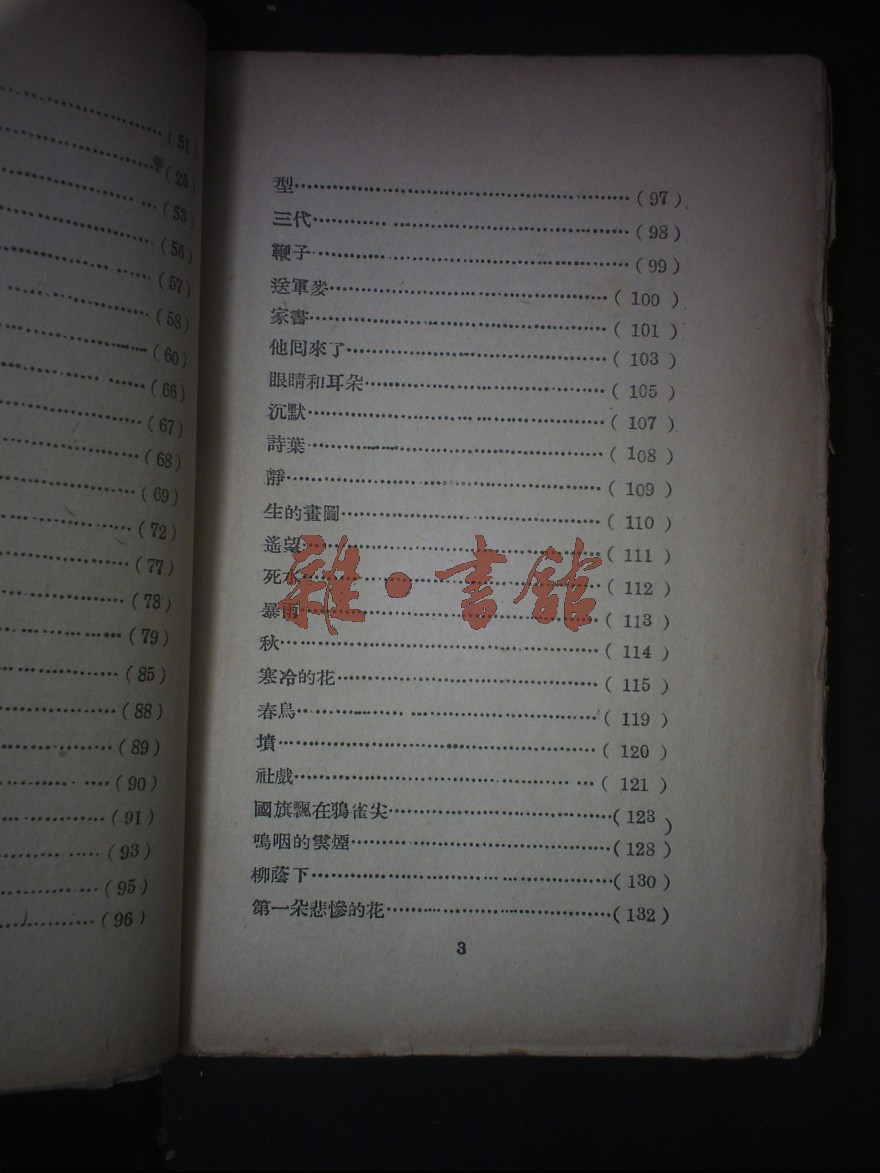 (51)
(25)
(53)
(56)
(57)
(58)
(60)
(66)
(67)
(68)
(69)
(72)
(77)
(78)
(79)
(85)
(88)
(89)
(90)
(91)
(93)
(95)
(96)
型………(97)
三代………(98)
鞭子………(99)
送軍麥………(100)
家書………(101)
他囘來了………(103)
眼睛和耳朵………(105)
沉默………(107)
詩葉………(108)
靜………(109)
生的畫圖………(110)
遙望………(111)
死水………(112)
暴雨………(113)
秋………(114)
寒冷的花………(115)
春鳥………(119)
墳………(120)
社戲………(121)
國旗飄在鴉雀尖………(123)
嗚咽的雲煙………(128)
柳蔭下………(130)
第一朵悲慘的花………(132)
3
雜·書館